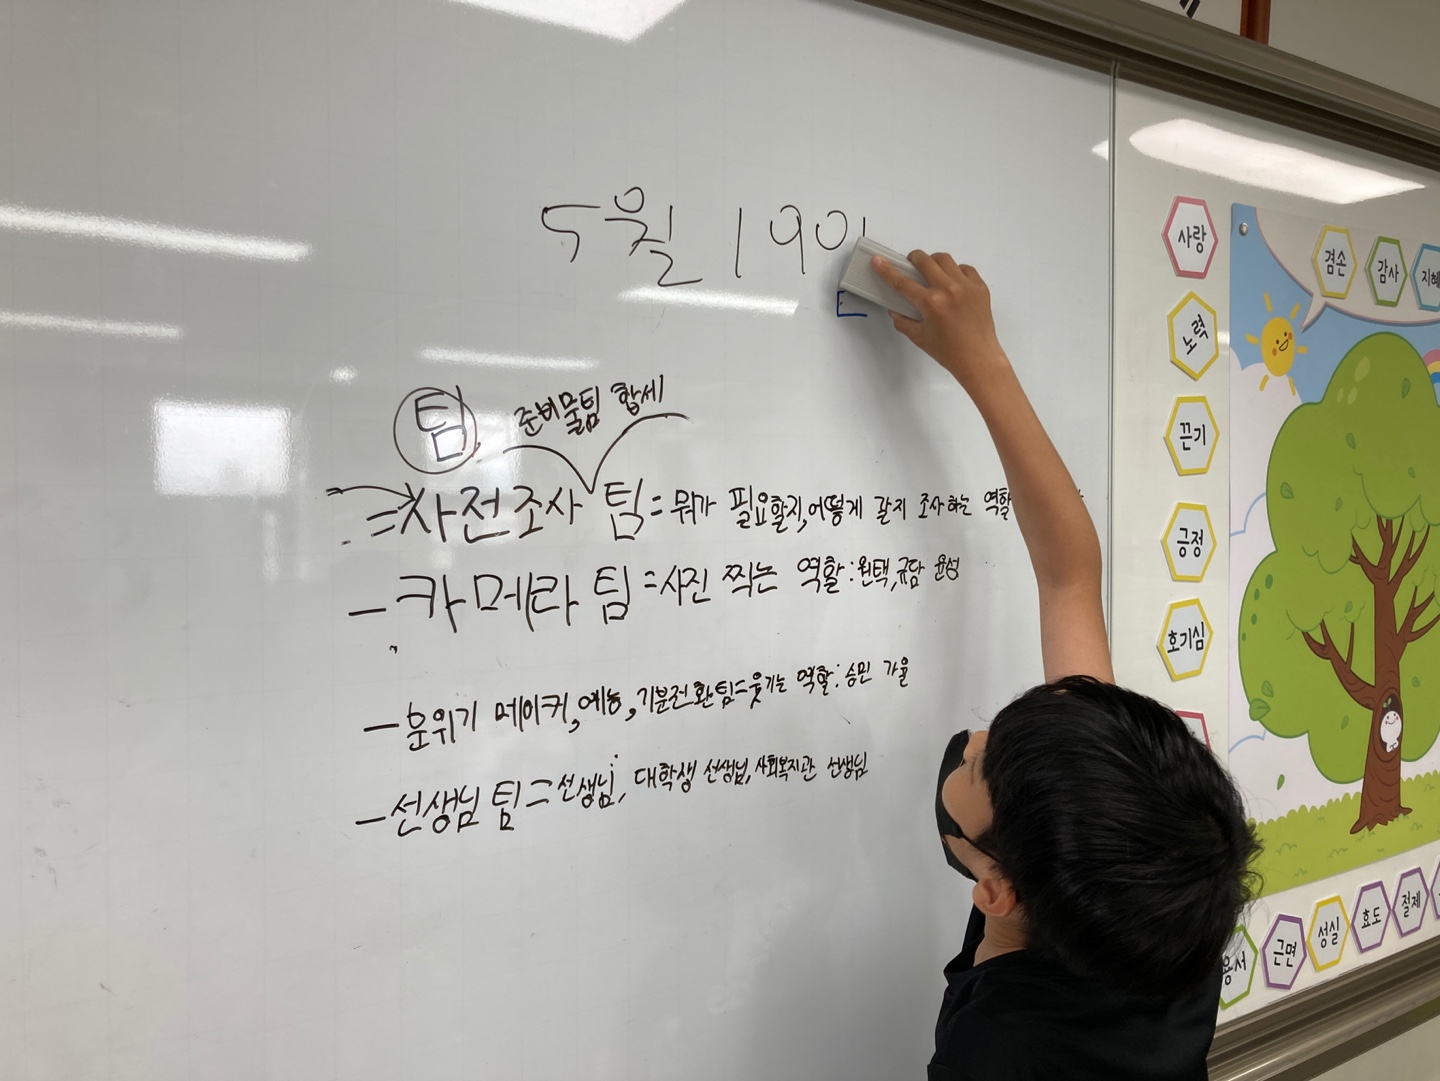 5월 19일
팀
준비물팀 합세
=사전조사 팀=뭐가 필요할지,어떻게 갈지 조사하는 역할
-카메라 팀=사진 찍는 역할:원택,규담 윤성
-분위기 메이커,예능,기분전환팀=웃기는 역할:승민 가율
-선생님 팀=선생님, 대학생 선생님,사회복지관 선생님
사랑
노력
끈기
긍정
호기심
겸손
감사
지혜
용서
근면
성실
효도
절제